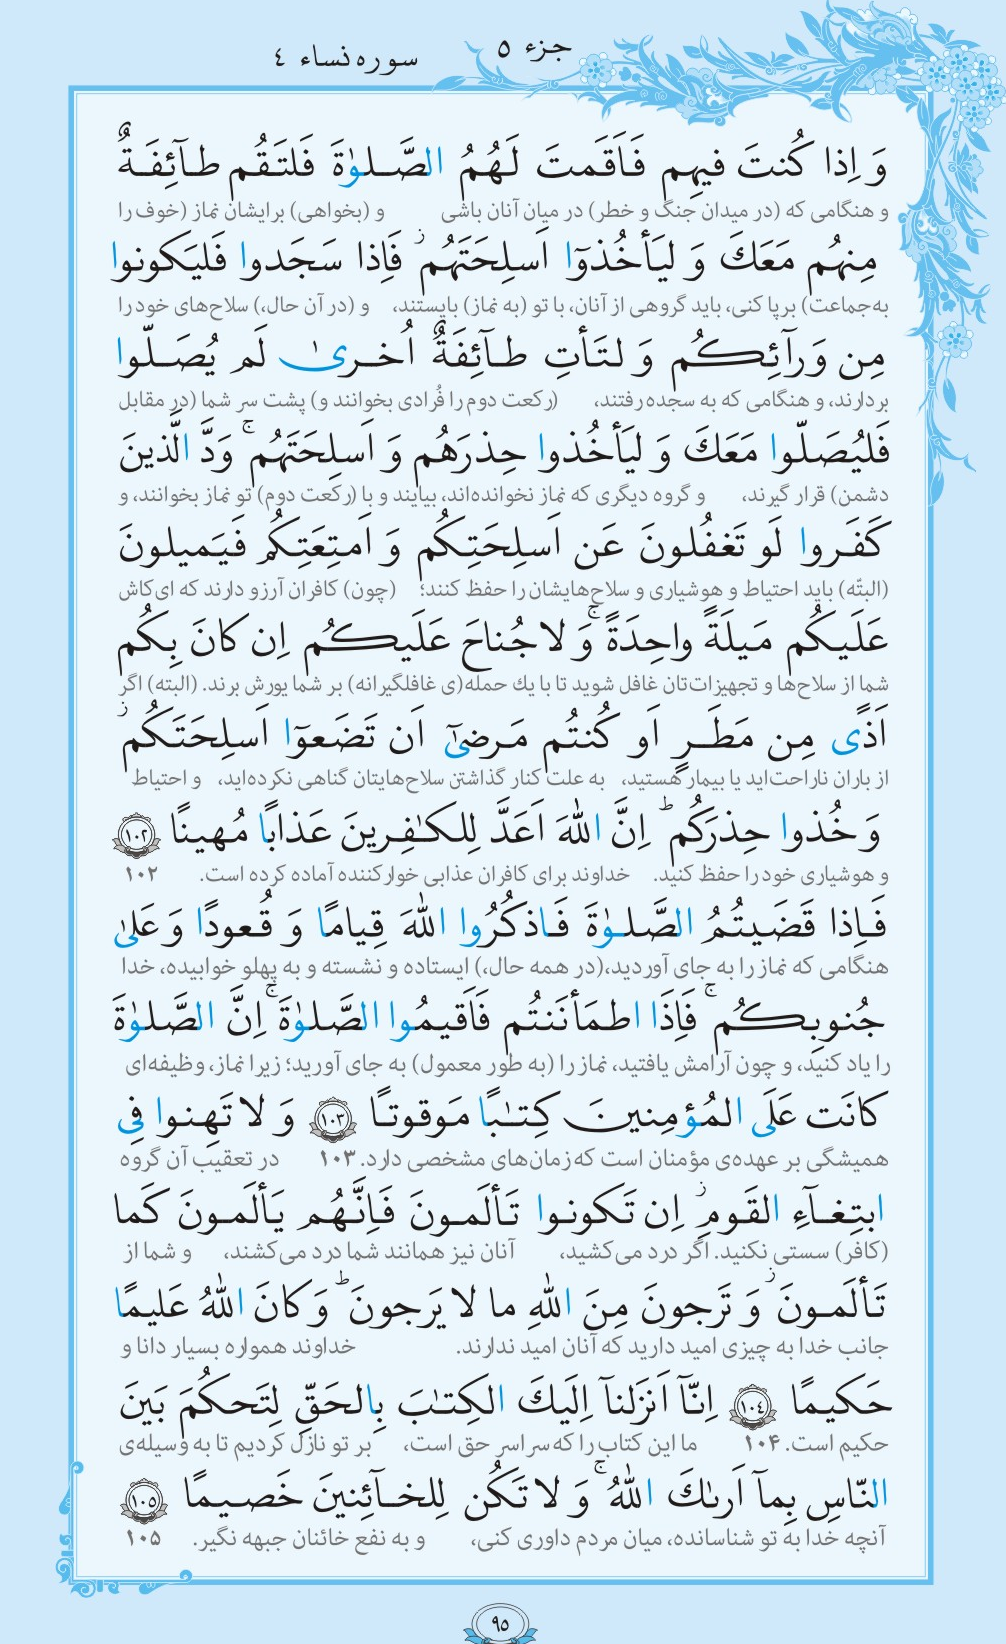 جزء ٥
سوره نساء ٤
وَ اِذا كُنتَ فيهِم فَاَقَمتَ لَهُمُ الصَّلوٰةَ فَلتَقُم طـآئِفَـةٌ
و هنگامی که (در میدان جنگ و خطر) در میان آنان باشی و (بخواهی) برایشان نماز (خوف را
مِنهُم مَعَكَ وَ ليَأخُذوٓا اَسلِحَتَهُم ۖ فَاِذا سَجَدوا فَليَكونوا
به‌جماعت) برپا کنی، باید گروهی از آنان، با تو (به نماز) بایستند، و (در آن حال،) سلاح‌های خود را
مِن وَرآئِكُم وَ لتَأتِ طـآئِفَةٌ اُخـرىٰ لَم يُصَـلّوا
بردارند، و هنگامی که به سجده رفتند، (رکعت دوم را فُرادی بخوانند و) پشت سر شما (در مقابل
فَليُصَلّوا مَعَكَ وَ ليَأخُذوا حِذرَهُم وَ اَسلِحَتَهُم ۚ وَدَّ الَّذينَ
دشمن) قرار گیرند، و گروه دیگری که نماز نخوانده‌اند، بیایند و با (رکعت دوم) تو نماز بخوانند، و
كَفَروا لَو تَغفُلونَ عَن اَسلِحَتِكُم وَ اَمتِعَتِكُم فَيَميلونَ
(البتّه) باید احتیاط و هوشیاری و سلاح‌هایشان را حفظ کنند؛ (چون) کافران آرزو دارند که ای‌کاش
عَلَيكُم مَيلَةً واحِدَةً ۚ وَ لا جُناحَ عَلَيكُم اِن كانَ بِكُم
شما از سلاح‌ها و تجهیزات‌تان غافل شوید تا با یك حمله(ی غافلگیرانه) بر شما یورش برند. (البته) اگر
اَذًى مِن مَطَـرٍ اَو كُنتُم مَرضىٰٓ اَن تَضَعوٓا اَسلِحَتَكُم ۖ
از باران ناراحت‌اید یا بیمار هستید، به علت کنار گذاشتن سلاح‌هایتان گناهی نکرده‌اید، و احتیاط
وَ خُذوا حِذرَكُم ۗ اِنَّ اللّٰهَ اَعَدَّ لِلكـٰفِرينَ عَذابًا مُهينًا ١٠٢
و هوشیاری خود را حفظ کنید. خداوند برای کافران عذابی خوارکننده آماده کرده است. ۱۰۲
فَـاِذا قَضَيتُمُ الصَّلوٰةَ فَـاذكُرُوا اللّٰهَ قِيامًا وَ قُـعودًا وَ عَلىٰ
هنگامی که نماز را به جای آوردید،(در همه حال،) ایستاده و نشسته و به پهلو خوابیده، خدا
جُنوبِكُم ۚ فَاِذَا اطمَأنَنتُم فَاَقيمُوا الصَّلوٰةَ ۚ اِنَّ الصَّلوٰةَ
را یاد کنید، و چون آرامش یافتید، نماز را (به طور معمول) به جای آورید؛ زیرا نماز، وظیفه‌ای
كانَت عَلَى المُؤمِنينَ كِتـٰبًا مَوقوتًا ١٠٣ وَ لا تَهِنوا فِى
همیشگی بر عهده‌ی مؤمنان است که زمان‌های مشخصی دارد. ۱۰۳ در تعقیب آن گروه
ابتِغـآءِ القَومِ ۖ اِن تَكونوا تَألَمـونَ فَاِنَّهُم يَألَمـونَ كَما
(کافر) سستی نکنید. اگر درد می‌کشید، آنان نیز همانند شما درد می‌کشند، و شما از
تَألَمـونَ ۖ وَ تَرجونَ مِنَ اللّٰهِ ما لا يَرجونَ ۗ وَ كانَ اللّٰهُ عَليمًا
جانب خدا به چیزی امید دارید که آنان امید ندارند. خداوند همواره بسیار دانا و
حَكيمًا ١٠٤ اِنّآ اَنزَلنآ اِلَيكَ الكِتـٰبَ بِالحَقِّ لِتَحكُمَ بَينَ
حکیم است. ۱۰۴ ما این کتاب را که سراسر حق است، بر تو نازل کردیم تا به وسیله‌ی
النّاسِ بِمآ اَرىٰكَ اللّٰهُ ۚ وَ لا تَكُن لِلخـآئِنينَ خَصـيمًا ١٠٥
آنچه خدا به تو شناسانده، میان مردم داوری کنی، و به نفع خائنان جبهه نگیر. ۱۰۵
٩٥